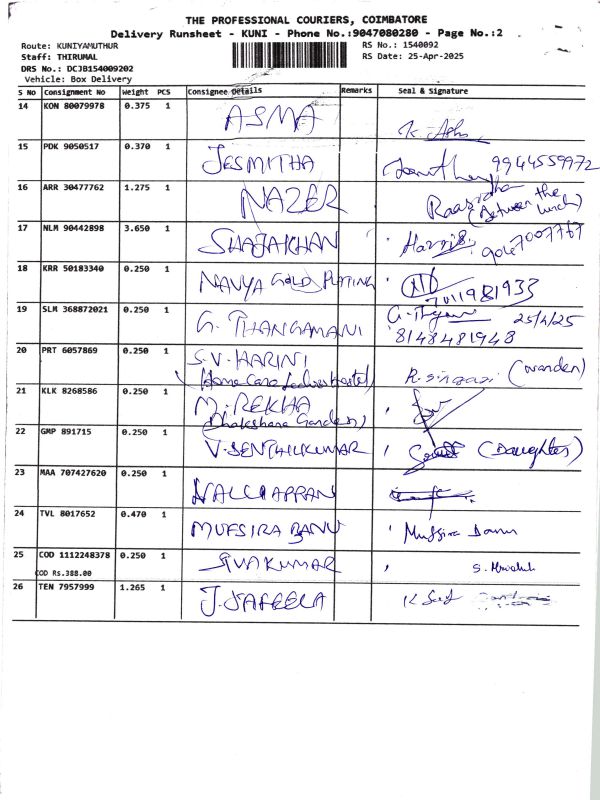 THE PROFESSIONAL COURIERS, COIMBATORE
Delivery Runsheet - KUNI - Phone No.:9047080280 - Page No.:2
Route: KUNIYAMUTHUR RS No.: 1540092
Staff: THIRUMAL RS Date: 25-Apr-2025
DRS No.: DCJB154009202
Vehicle: Box Delivery
S No Consignment No Weight PCS Consignee Details Remarks Seal & Signature
14 KON 80079978 0.375 1 ASMA
15 PDK 9050517 0.370 1 JESMITHA 9944559972
16 ARR 30477762 1.275 1 NAZER
(Between the lunch)
17 NLM 90442898 3.650 1 SHAJAKHAN 9047007767
18 KRR 50183340 0.250 1 NAVYA GOLD PLATING 7011981933
19 SLM 368872021 0.250 1 G. THANGAMANI 25/4/25
8148481948
20 PRT 6057869 0.250 1 S.V. HARINI
(Home Care Ladies Hostel) (warden)
21 KLK 8268586 0.250 1 M. REKHA
(Dhakshana Garden)
22 GMP 891715 0.250 1 V. SENTHILKUMAR (Daughter)
23 MAA 707427620 0.250 1 NALLIAPPAN
24 TVL 8017652 0.470 1 MUFSIRA BANU Mufsira Banu
25 COD 1112248378 0.250 1 SIVAKUMAR
COD Rs.388.00
26 TEN 7957999 1.265 1 J. SAFEELA